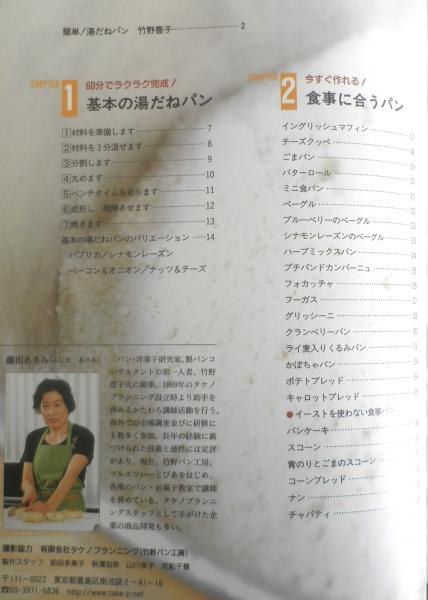 簡単！湯だねパン　竹野豊子 2
CHAPTER 1
60分でラクラク完成！
基本の湯だねパン
1 材料を準備します 7
2 材料を3分混ぜます 8
3 分割します 9
4 丸めます 10
5 ベンチタイムを走ります 11
6 成形し、発酵させます 12
7 焼きます 13
基本の湯だねパンのバリエーション 14
パプリカ／シナモンレーズン
ベーコン＆オニオン／ナッツ＆チーズ
CHAPTER 2
今すぐ作れる！
食事に合うパン
イングリッシュマフィン
チーズクッペ
ごまパン
バターロール
ミニ食パン
ベーグル
ブルーベリーのベーグル
シナモンレーズンのベーグル
ハーブミックスパン
プチパンドカンパーニュ
フォカッチャ
フーガス
グリッシーニ
クランベリーパン
ライ麦入りくるみパン
かぼちゃパン
ポテトブレッド
キャロットブレッド
●イーストを使わない食事パン
パンケーキ
スコーン
青のりとごまのスコーン
コーンブレッド
ナン
チャパティ
藤田あきみ（ふじた　あきみ）
パン・洋菓子研究家。製パンコ
ンサルタントの第一人者、竹野
豊子氏に師事。1989年のタケノ
プランニング設立時より助手を
務めるかたわら講師活動を行う。
海外での市場調査並びに研修に
も数多く参加。長年の経験に裏
づけられた技術と感性には定評
があり、現在、竹野パン工房、
マルエツいーとぴあをはじめ、
各地のパン・お菓子教室で講師
を務めている。タケノプランニ
ングスタッフとして手がけた企
業の商品開発も多い。
撮影協力　有限会社タケノプランニング（竹野パン工房）
製作スタッフ　前田多美子　秋澤加奈　山川孝子　荒船千景
〒171-0022　東京都豊島区南池袋2-41-16
☎03-3971-6836　http://www.take-p.net